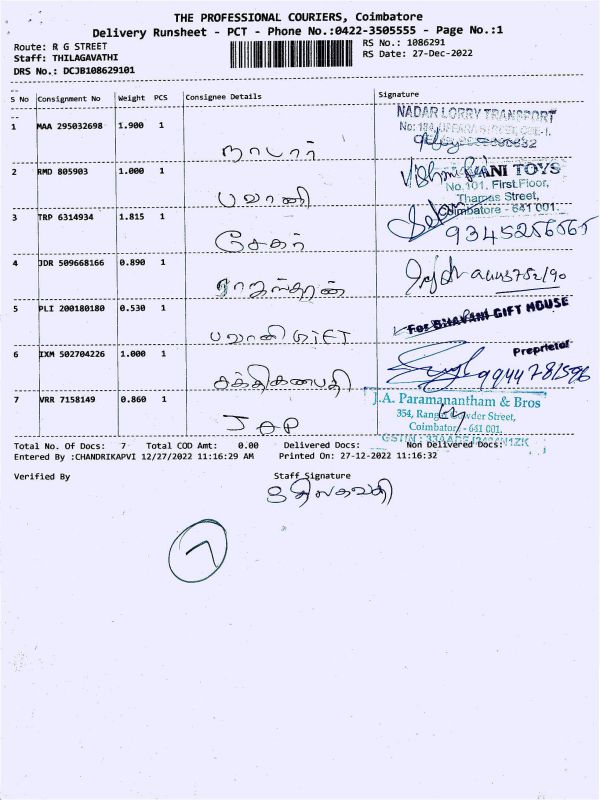 THE PROFESSIONAL COURIERS, Coimbatore
Delivery Runsheet - PCT - Phone No.:0422-3505555 - Page No.:1
Route: R G STREET
RS No.: 1086291
Staff: THILAGAVATHI
RS Date: 27-Dec-2022
DRS No.: DCJB108629101
S No Consignment No Weight PCS Consignee Details Signature
1 MAA 295032698 1.900 1 நாடார் NADAR LORRY TRANSPORT
2 RMD 805903 1.000 1 பவானி ANI TOYS
No.101, First Floor,
Thomas Street,
Coimbatore - 641 001.
3 TRP 6314934 1.815 1 சேகர்
4 JDR 509668166 0.890 1 ராஜஸ்தான்
5 PLI 200180180 0.530 1 பவானி GIFT For BHAVANI GIFT HOUSE
Proprietor
6 IXM 502704226 1.000 1 சக்திகணபதி 9944781596
7 VRR 7158149 0.860 1 JAP J.A. Paramanantham & Bros
354, Rangai Gowder Street,
Coimbatore - 641 001.
Total No. Of Docs: 7 Total COD Amt: 0.00 Delivered Docs: Non Delivered Docs:
Entered By :CHANDRIKAPVI 12/27/2022 11:16:29 AM Printed On: 27-12-2022 11:16:32
Verified By Staff Signature
7